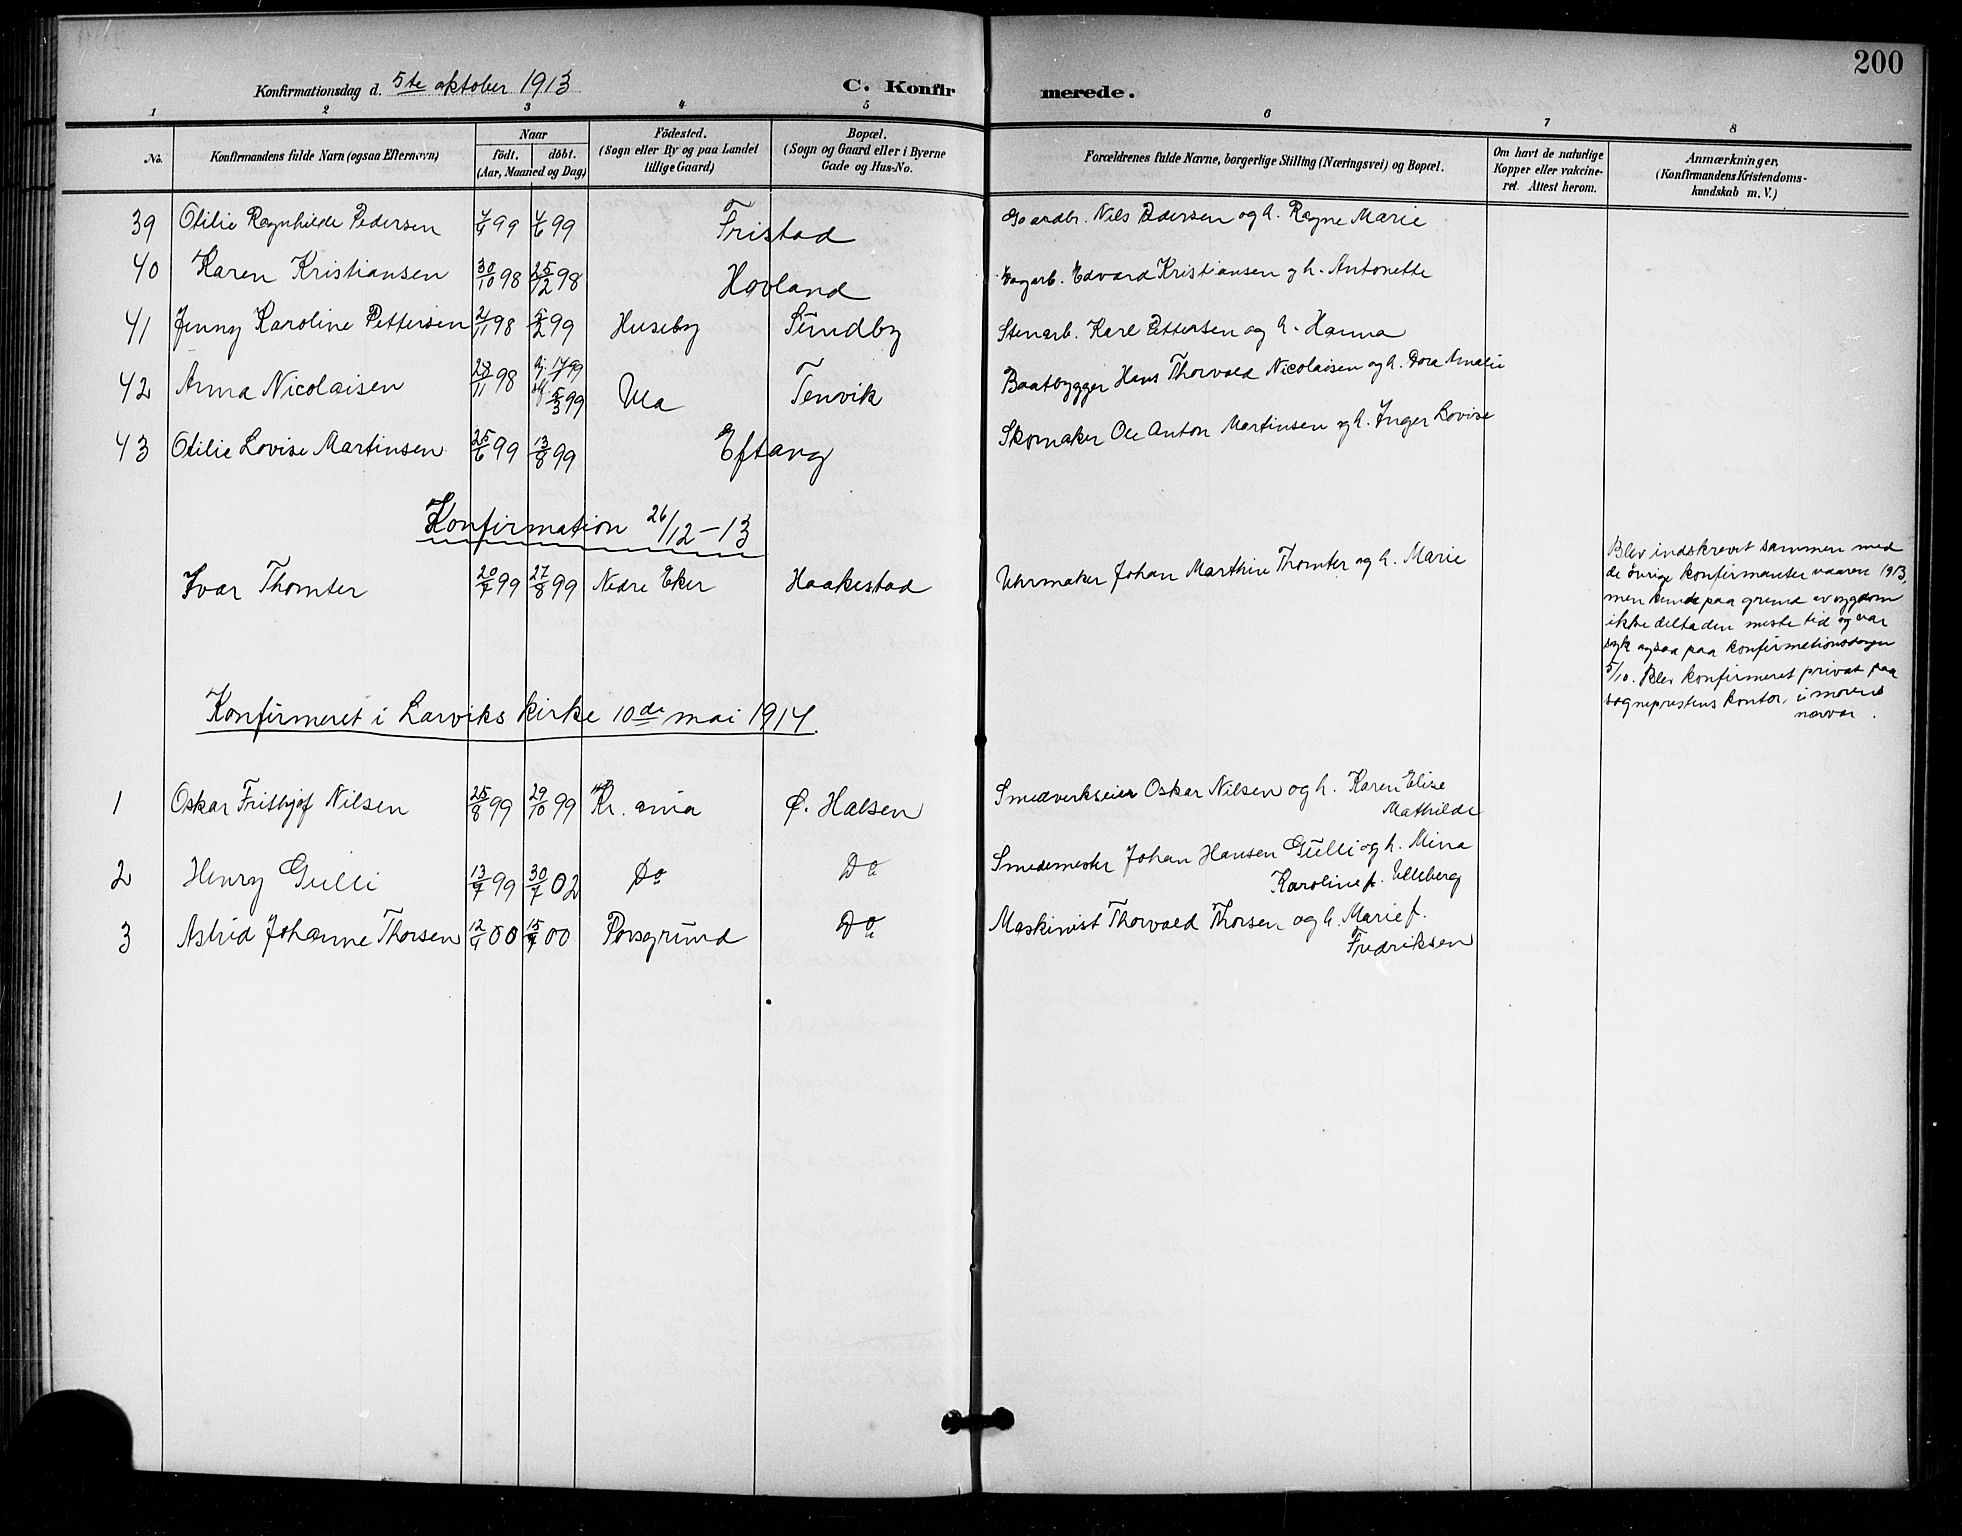 200
Konfirmationsdag d. 5te oktober 1913
C. Konfirmerede.
1 2 3 4 5 6 7 8
No.
Konfirmandens fulde Navn (ogsaa Efternavn)
Naar
født. døbt.
(Aar, Maaned og Dag)
Fødested.
(Sogn eller By og paa Landet
tillige Gaard)
Bopæl.
(Sogn og Gaard eller i Byerne
Gade og Hus-No.
Forældrenes fulde Navne, borgerlige Stilling (Næringsvei) og Bopæl.
Om havt de naturlige
Kopper eller vakcine-
ret. Attest herom.
Anmærkninger,
(Konfirmandens Kristendoms-
kundskab m. V.)
39 Otilie Ragnhilde Pedersen 99 99 Fristad Gaardbr. Nils Pedersen og h. Ragne Marie
40 Karen Kristiansen 30/10 98 25/12 98 Hovland Dagarb. Edvard Kristiansen og h. Antonette
41 Jenny Karoline Pettersen 2/11 98 5/2 99 Huseby Sundby Stenarb. Karl Pettersen og h. Hanna
42 Anna Nicolaisen 28/11 98 5/3 99 Ula Tenvik Baatbygger Hans Thorvald Nicolaisen og h. Dora Amalie
43 Otilie Lovise Martinsen 25/6 99 13/8 99 Eftang Skomaker Ole Anton Martinsen og h. Inger Lovise
Konfirmation 26/12 – 13
Ivar Thomter 20/7 99 27/8 99 Nedre Eker Haakestad Uhrmaker Johan Marthin Thomter og h. Marie
Blev indskrevet sammen med
de øvrige konfirmanter vaaren 1913,
men kunde paa grund av sygdom
ikke delta den meste tid og var
syk ogsaa paa konfirmationsdagen
5/10. Blev konfirmeret privat paa
sogneprestens kontor, i morens
nærvær.
Konfirmeret i Larviks kirke 10de mai 1914.
1 Oskar Frithjof Nilsen 25/8 99 29/10 99 Kr.ania Ø. Halsen Smedverkseier Oskar Nilsen og h. Karen Elise
Mathilde
2 Henry Gulli 13/7 99 30/7 02 Do Do Smedemester Johan Hansen Gulli og h. Mina
Karoline f. Ulleberg
3 Astrid Johanne Thorsen 12/4 00 15/7 00 Porsgrund Do Maskinist Thorvald Thorsen og h. Marie f.
Fredriksen